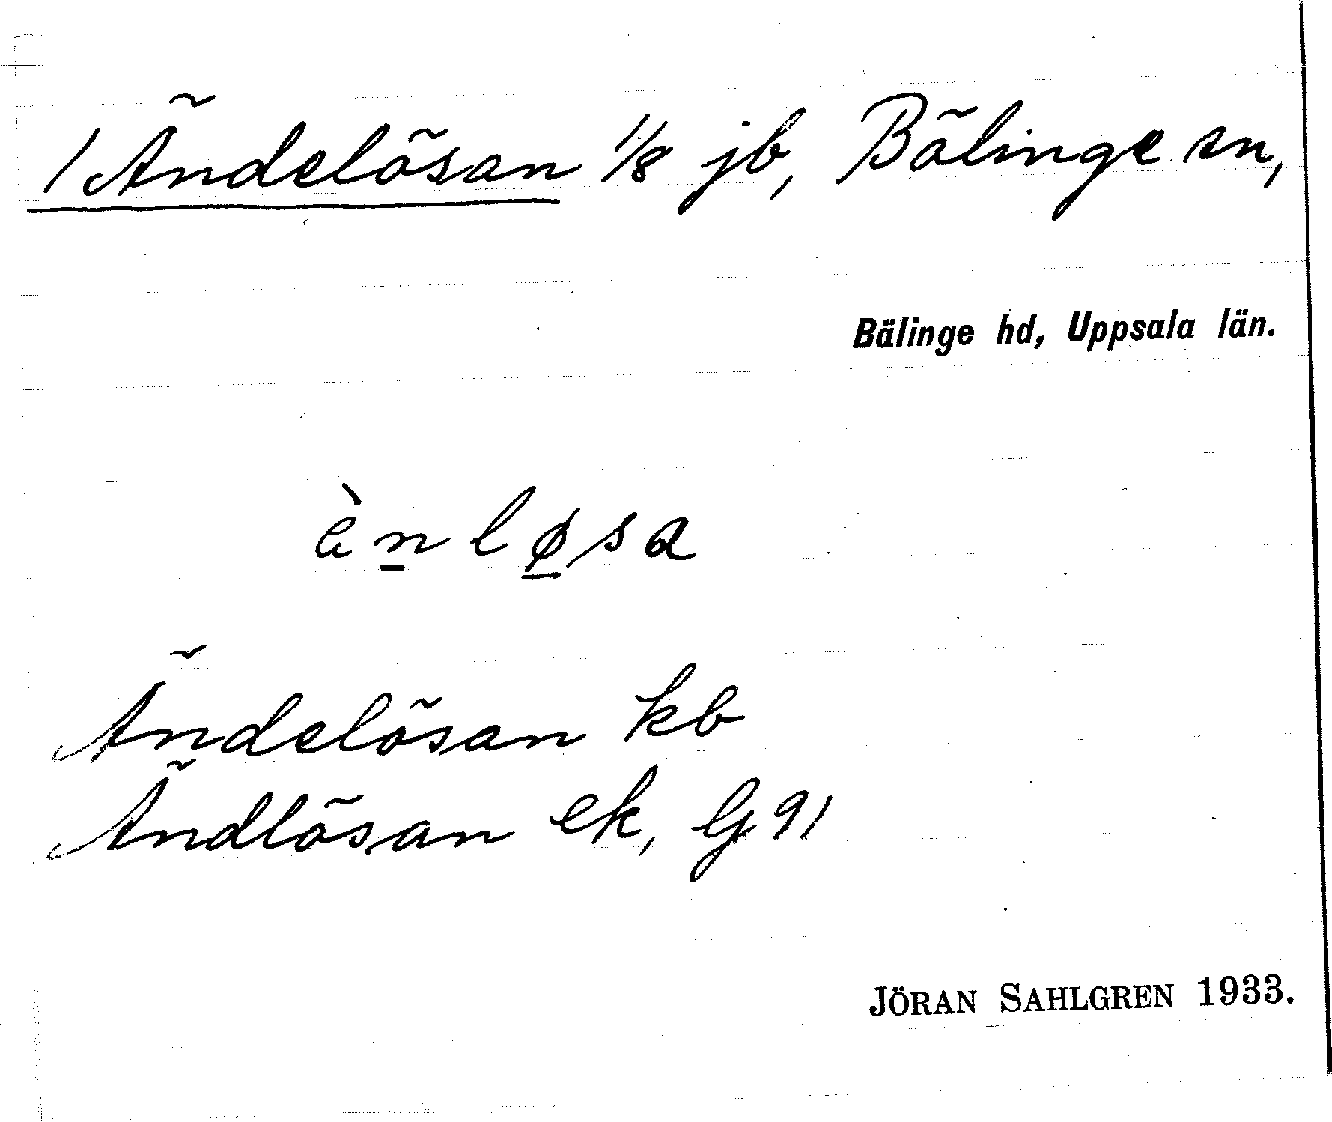 1 Ändelösan 1/8 jb, Bälinge sn,
Bälinge hd, Uppsala län.
ὲn̲lø̲sa
Ändelösan kb
Ändlösan ek, G 91
JÖRAN SAHLGREN 1933.